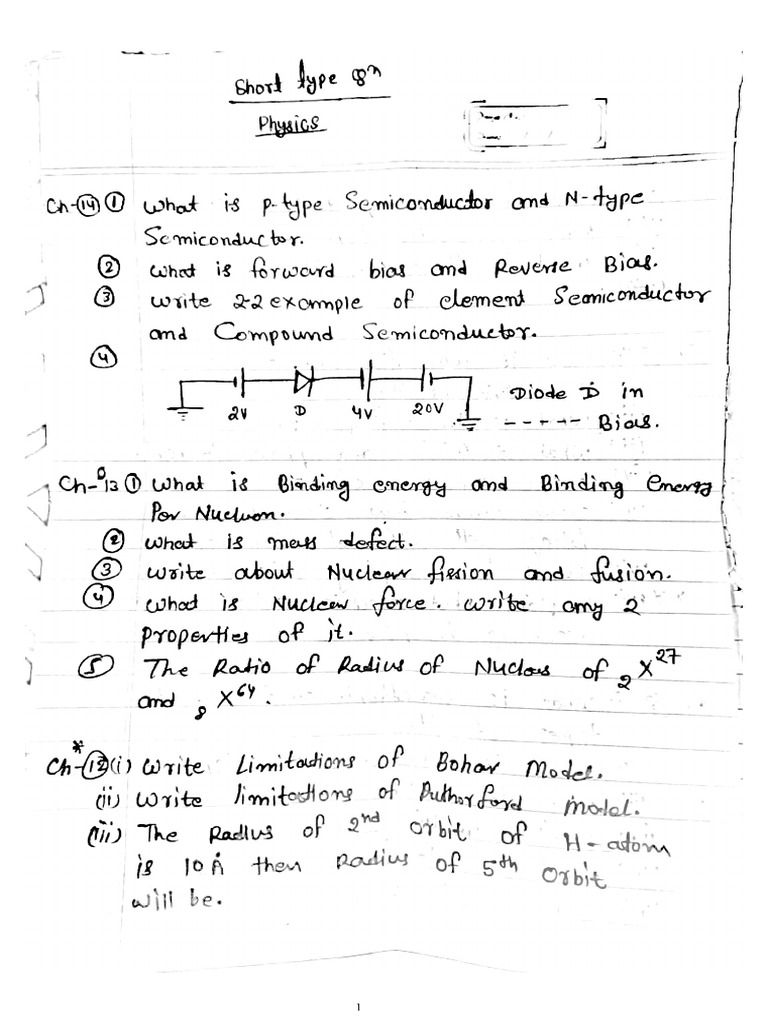 Short type Qn
Physics
Ch-14 ① What is P-type Semiconductor and N-type
Semiconductor.
② What is forward bias and Reverse Bias.
③ Write 2-2 example of element Semiconductor
and Compound Semiconductor.
④
2V D 4V 20V
Diode D in
------ Bias.
Ch-13 ① What is Binding energy and Binding Energy
Per Nucluon.
② What is mass defect.
③ Write about Nuclear fission and fusion.
④ What is Nuclear force. Write any 2
properties of it.
⑤ The Ratio of Radius of Nucleus of ₂X²⁷
and ₈X⁶⁴.
*
Ch-12 (i) Write Limitations of Bohar Model.
(ii) Write limitations of Ruthorford model.
(iii) The Radius of 2nd orbit of H-atom
is 10Å then Radius of 5th orbit
will be.
1